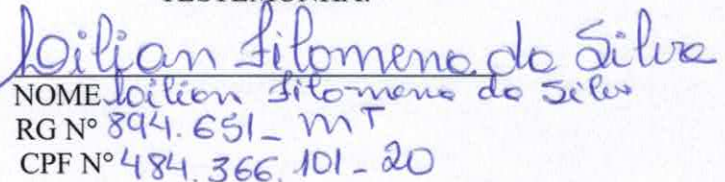 Lilian Filomena da Silva
NOME Lilian Filomena da Silva
RG Nº 894.651_ MT
CPF Nº 484.366.101-20